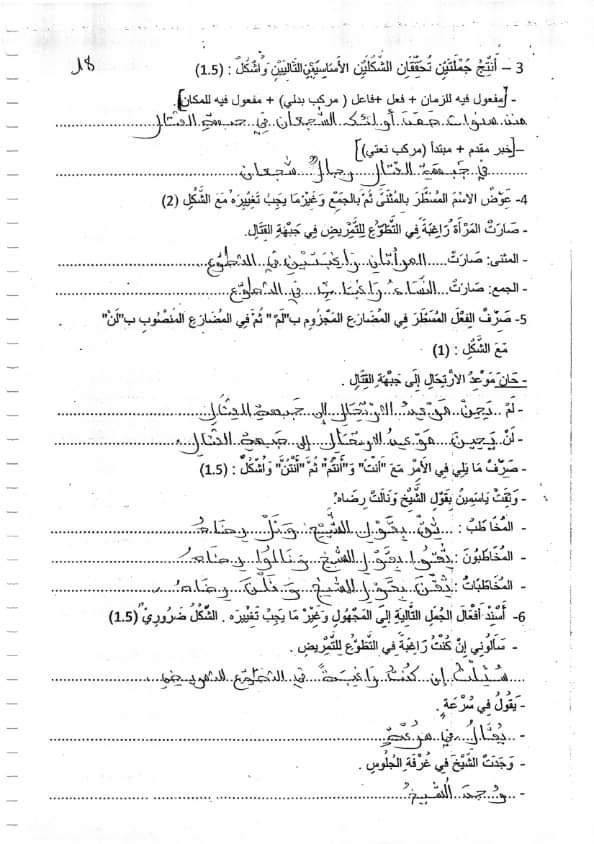 18
3 – أَنْتِجُ جُمْلَتَيْنِ تُحَقِّقَانِ الشَّكْلَيْنِ الأَسَاسِيَّيْنِ التَّالِيَيْنِ وَأَشْكُلُ : (1.5)
- [مفعول فيه للزمان + فعل +فاعل ( مركب بدلي) + مفعول فيه للمكان]
منذ سنوات صمد أولئك الشجعان في جبهة القتال
–[خبر مقدم + مبتدأ (مركب نعتي)]
في جبهة القتال رجالٌ شجعان
4- عَوِّضْ الاسْمَ المُسَطَّرَ بِالمُثَنَّى ثُمَّ بِالجَمْعِ وَغَيِّرْ مَا يَجِبُ تَغْيِيرُهُ مَعَ الشَّكْلِ (2)
- صَارَتْ المَرْأَةُ رَاغِبَةً فِي التَّطَوُّعِ لِلتَّمْرِيضِ فِي جَبْهَةِ القِتَالِ.
- المثنى: صَارَتْ المرأتانِ رَاغِبَتَيْنِ فِي التطوّعِ
- الجمع: صَارَتْ النِّسَاءُ رَاغِبَاتٍ فِي التطوّعِ
5- صَرِّفْ الفِعْلَ المُسَطَّرَ فِي المُضَارِعِ المَجْزُومِ بِ"لَمْ" ثُمَّ فِي المُضَارِعِ المَنْصُوبِ بِ"لَنْ"
مَعَ الشَّكْلِ : (1)
- حَانَ مَوْعِدُ الارْتِحَالِ إِلَى جَبْهَةِ القِتَالِ .
- لَمْ يَحِنْ مَوْعِدُ الارْتِحَالِ إلى جبهةِ القِتَالِ
- لَنْ يَحِينَ مَوْعِدُ الارتحَالِ إلى جبهةِ القتالِ
- صَرِّفْ مَا يَلِي فِي الأَمْرِ مَعَ "أَنْتَ" وَ"أَنْتُمْ" ثُمَّ "أَنْتُنَّ" وَأَشْكُلُ : (1.5)
- وَثِقَتْ يَاسَمِينُ بِقَوْلِ الشَّيْخِ وَنَالَتْ رِضَاهُ.
- المُخَاطَبُ : ثِقْ بِقَوْلِ الشَّيْخِ وَنَلْ رِضَاهُ
- المُخَاطَبُونَ : ثِقُوا بِقَوْلِ الشَّيْخِ وَنَالُوا رِضَاهُ
- المُخَاطَبَاتُ : ثِقْنَ بِقَوْلِ الشَّيْخِ وَنَلْنَ رِضَاهُ
6- أَسْنِدْ أَفْعَالَ الجُمَلِ التَّالِيَةِ إِلَى المَجْهُولِ وَغَيِّرْ مَا يَجِبُ تَغْيِيرُه . الشَّكْلُ ضَرُورِيٌّ (1.5)
- سَأَلُونِي إِنْ كُنْتُ رَاغِبَةً فِي التَّطَوُّعِ لِلتَّمْرِيضِ .
سُئِلْتُ إن كُنْتُ رَاغِبَةً فِي التطوّعِ للتمريضِ
- يَقُولُ فِي سُرْعَةٍ .
- يُقَالُ فِي سُرْعَةٍ
- وَجَدَتْ الشَّيْخَ فِي غُرْفَةِ الجُلُوسِ .
- وُجِدَ الشَّيْخُ